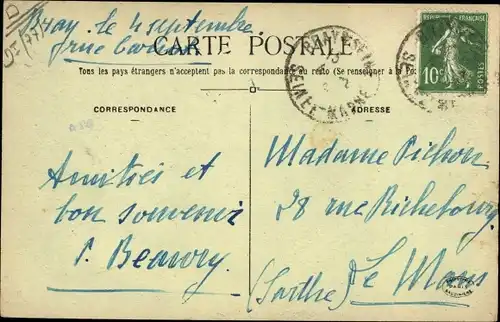 Bray le 4 septembre
rue
(77)
CARTE POSTALE
Tous les pays étrangers n'acceptent pas la correspondance au recto (Se renseigner à la Po
CORRESPONDANCE
ADRESSE
RÉPUBLIQUE FRANÇAISE
10c
POSTES
BRAY-S-SEINE
SEINE-ET-MARNE
Amitiés et
bon souvenir
Madame Pichon
28 rue Richebourg
Le Mans
(Sarthe)